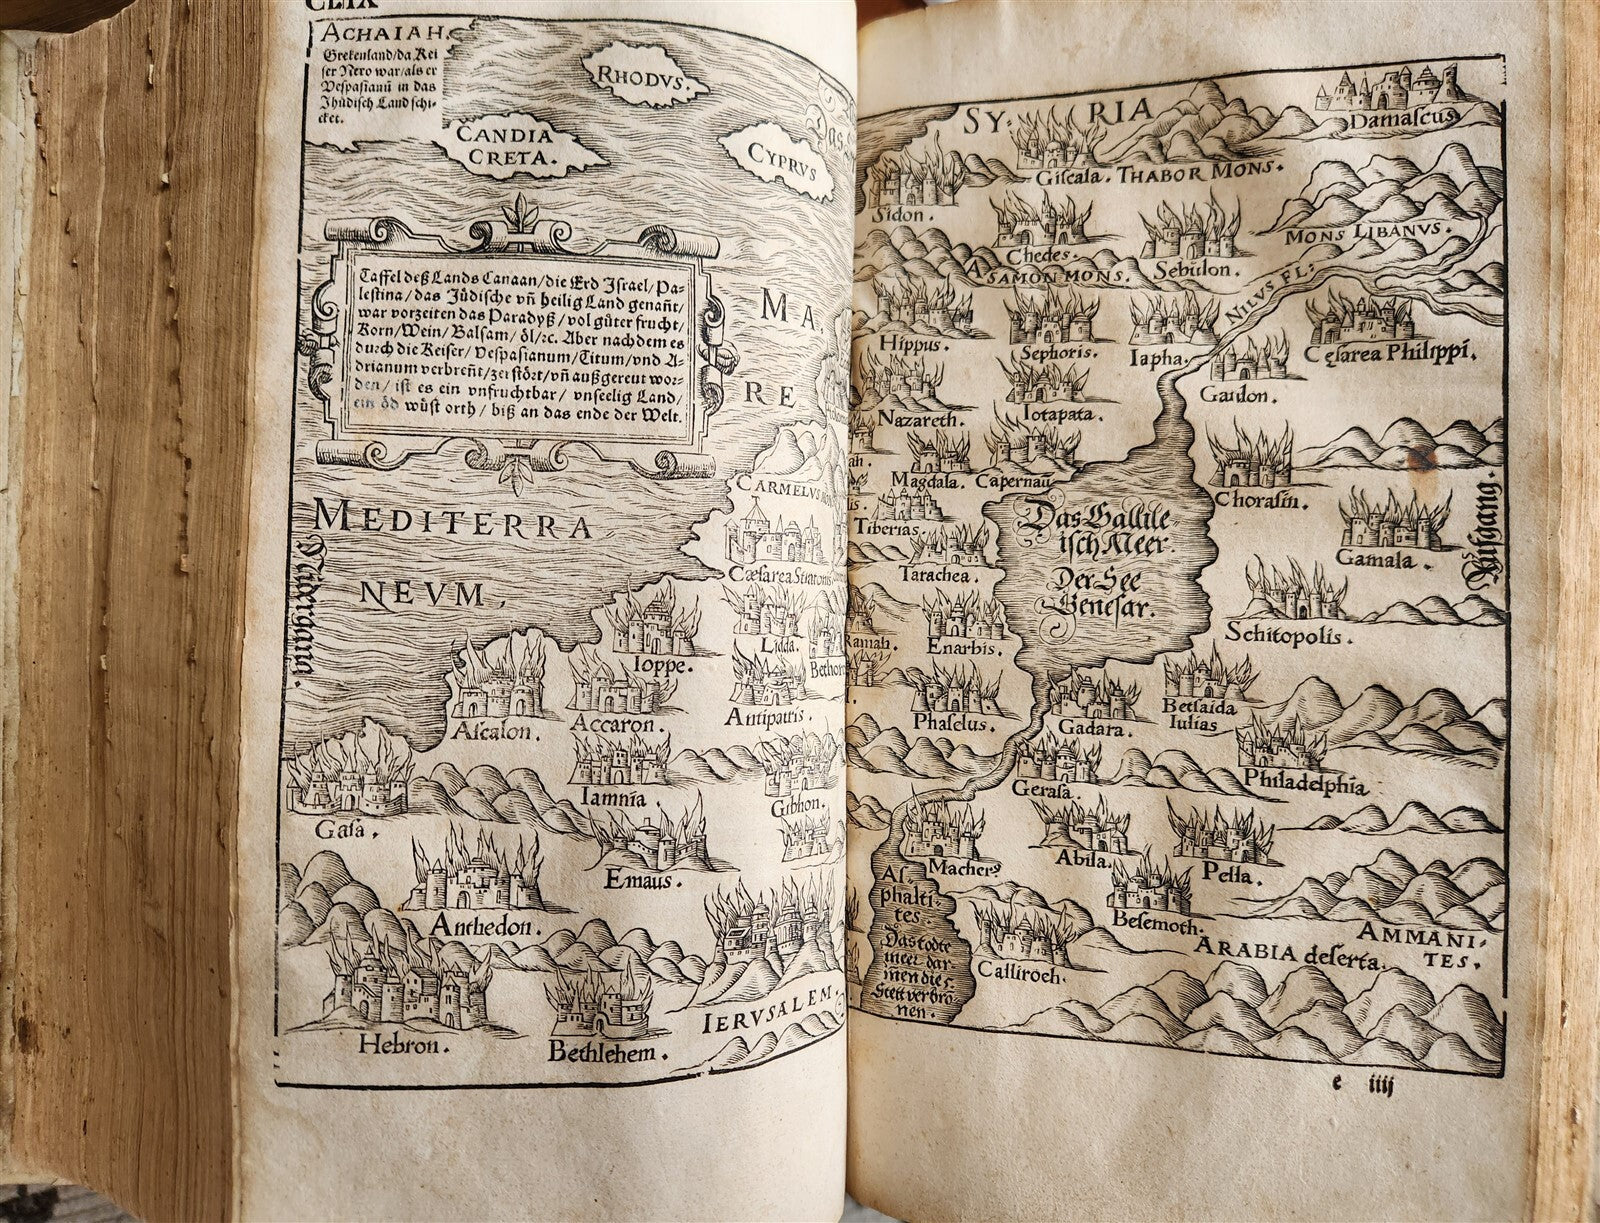 CLIX
ACHAIAH.
Grekenland/da Kei
ser Nero war/als er
Vespasianū in das
Jhüdisch Land schi-
cket.
RHODVS.
CANDIA
CRETA.
CYPRVS
Das
Taffel deß Lands Canaan/die Erd Israel/Pa-
lestina/das Jüdische vñ heilig Land genañt/
war vorzeiten das Paradyß/vol güter frucht/
Korn/Wein/Balsam/öl/ꝛc. Aber nachdem es
durch die Keiser/Vespasianum/Titum/vnd A-
drianum verbreñt/zerstört/vñ außgereut wor-
den/ist es ein vnfruchtbar/vnseelig Land/
ein öd wüst orth/biß an das ende der Welt.
MA
RE
MEDITERRA
NEVM,
Nidergang.
CARMELVS
Cæsarea Stratonis
Lidda.
Bethor
Ioppe.
Ascalon.
Accaron.
Antipatris.
Iamnia.
Gibhon.
Gasa.
Emaus.
Anthedon.
Hebron.
Bethlehem.
IERVSALEM.
SY-RIA
Damascus
Giscala.
THABOR MONS.
Sidon.
Chedes.
Sebulon.
MONS LIBANVS.
ASAMON MONS.
NILVS FL:
Hippus.
Sephoris.
Iapha.
Cesarea Philippi.
Gaulon.
Nazareth.
Iotapata.
ah.
Magdala.
Capernau
is.
Tiberias.
Chorasin.
Das Gallile-
isch Meer.
Der See
Genesar.
Gamala.
Auffgang.
Tarachea.
Schitopolis.
Ramah.
Enarbis.
Phaselus.
Gadara.
Betsaida
Iulias
Philadelphia
Gerasa.
Machers
Abila.
Pella.
Besemoth.
As-
phalti-
tes.
Das todte
meer dar-
innen die 5.
Stett verbro-
nen.
Calliroeh.
ARABIA deserta.
AMMANI-
TES.
e iiij